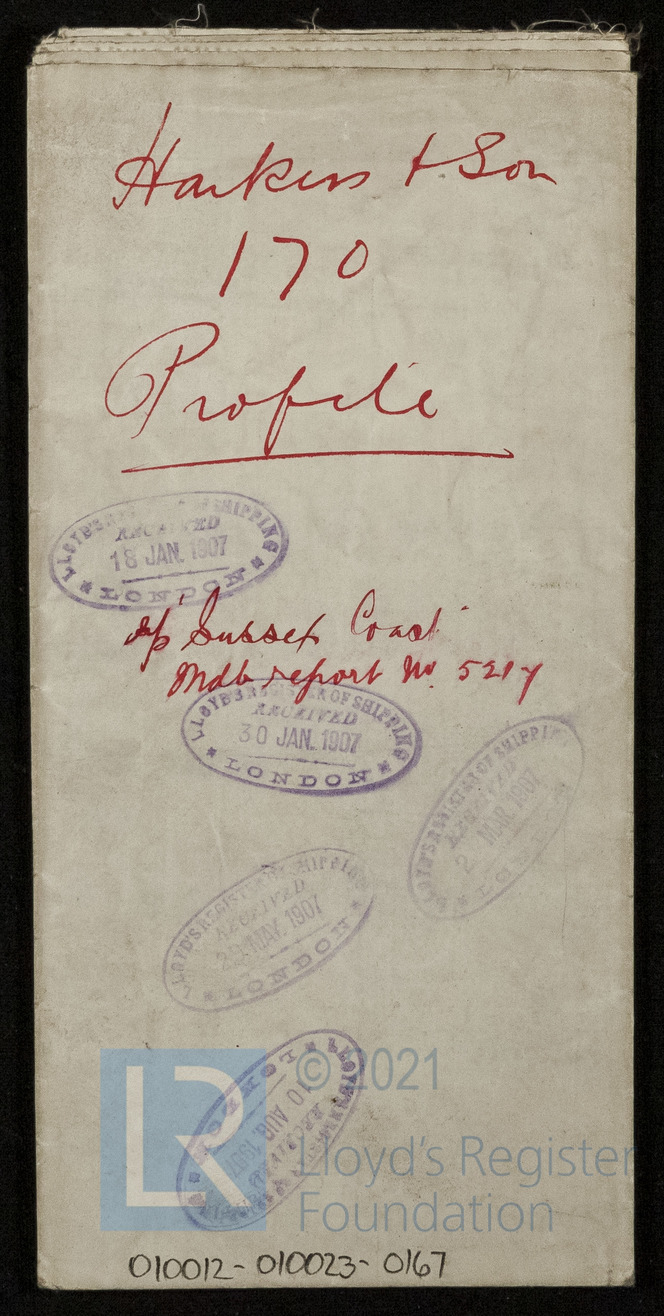 Harkess & Son
170
Profile
LLOYD'S REGISTER OF SHIPPING
RECEIVED
18 JAN. 1907
LONDON
"Sussex Coast"
Mdb report No. 5217
LLOYD'S REGISTER OF SHIPPING
RECEIVED
30 JAN. 1907
LONDON
LLOYD'S REGISTER OF SHIPPING
RECEIVED
2 MAR. 1907
LONDON
LLOYD'S REGISTER OF SHIPPING
RECEIVED
MAY. 1907
LONDON
LLOYD'S
AUG
LONDON
LR
© 2021
Lloyd's Register
Foundation
010012-010023-0167